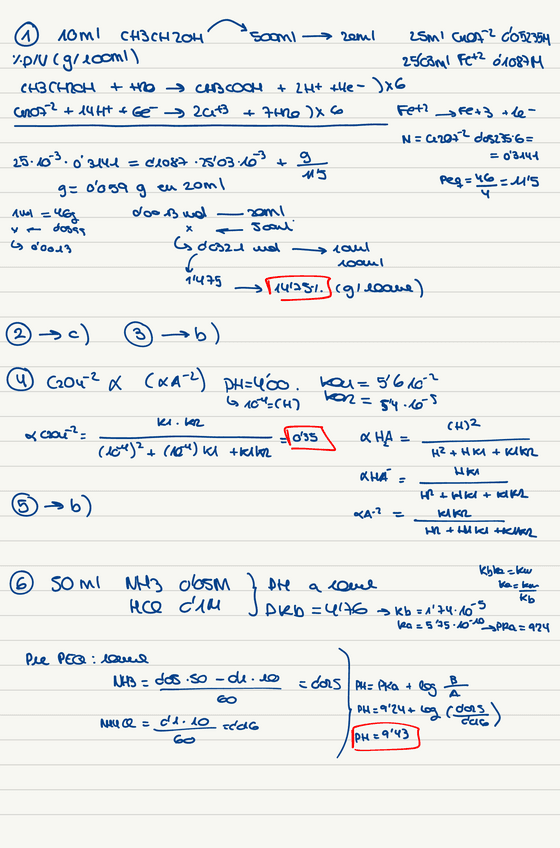 ① 10ml CH3CH2OH → 500ml → 20ml 25ml Cr2O7⁻² 0'05235M
%P/V (g/100ml) 25'03ml Fe⁺² 0'1087M
CH3CH2OH + H2O → CH3COOH + 4H⁺ + 4e⁻ )x6
Cr2O7⁻² + 14H⁺ + 6e⁻ → 2Cr⁺³ + 7H2O )x6 Fe⁺² → Fe⁺³ + 1e⁻
N = Cr2O7⁻² 0'05235·6 =
= 0'3141
25·10⁻³ · 0'3141 = 0'1087 · 25'03·10⁻³ + g/11'5
Peq = 46/4 = 11'5
g = 0'059 g en 20ml
1mol = 46g 0'0013 mol — 20ml
x ← 0'059g x ← 500ml
↳ 0'0013 ↳ 0'0321 mol → 10ml
100ml
1'475 → 14'75% (g/100ml)
② → c) ③ → b)
④ C2O4⁻² α (αA⁻²) PH = 4'00. Ka1 = 5'6·10⁻²
↳ 10⁻⁴ = (H) Ka2 = 5'4·10⁻⁵
αC2O4⁻² = K1·K2 / (10⁻⁴)² + (10⁻⁴)K1 + K1K2 = 0'35 αH2A = (H)² / H² + HK1 + K1K2
αHA⁻ = HK1 / H² + HK1 + K1K2
⑤ → b) αA⁻² = K1K2 / H2 + HK1 + K1K2
KbKa = Kw
Ka = Kw/Kb
⑥ 50ml NH3 0'05M } PH a 10ml
HCl 0'1M } PKb = 4'76 → Kb = 1'74·10⁻⁵
Ka = 5'75·10⁻¹⁰ → PKa = 9'24
Pre PEQ: 10ml
NH3 = 0'05·50 - 0'1·10 / 60 = 0'025 PH = PKa + log B/A
NH4Cl = 0'1·10 / 60 = 0'016 PH = 9'24 + log (0'025/0'016)
PH = 9'43